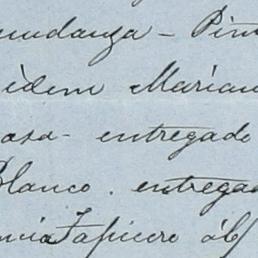 mudanza - Pin
idem Marian
casa - entregado
Blanco. entrega
mia Tapicero